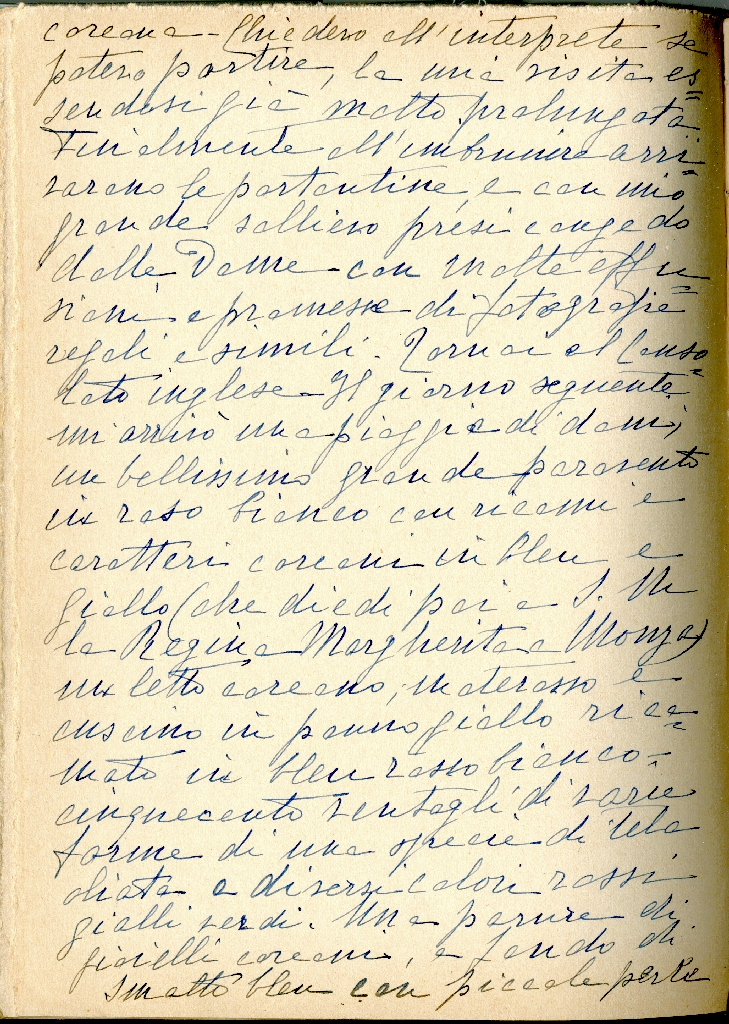 coreana - Chiedevo all'interprete se
potevo partire, la mia visita es=
sendosi già molto prolungata
Finalmente all'imbrunire arri=
varono le portantine, e con mio
grande sollievo presi congedo
dalle Dame - con molte effu=
sioni e promesse di fotografie
regali e simili. Tornai al Conso=
lato inglese - Il giorno seguente
mi arrivò una pioggia di doni,
un bellissimo grande paravento
in raso bianco con ricami e
caratteri coreani in bleu e
giallo (che diedi poi a S. M
la Regina Margherita a Monza)
un letto coreano, materasso e
cuscino in panno giallo rica=
mato in bleu rosso bianco -
cinquecento ventagli di varie
forme di una specie di tela
oliata a diversi colori rossi
gialli verdi. Una parure di
gioielli coreani, a fondo di
smalto bleu con piccole perle